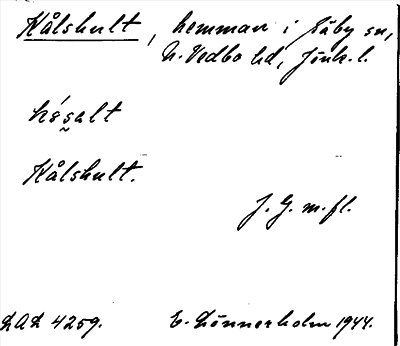 Kålshult, hemman i Säby sn,
N. Vedbo hd, Jönk. l.
Kålshult.
J. G. m. fl.
LAL 4259. E. Lönnerholm 1944.